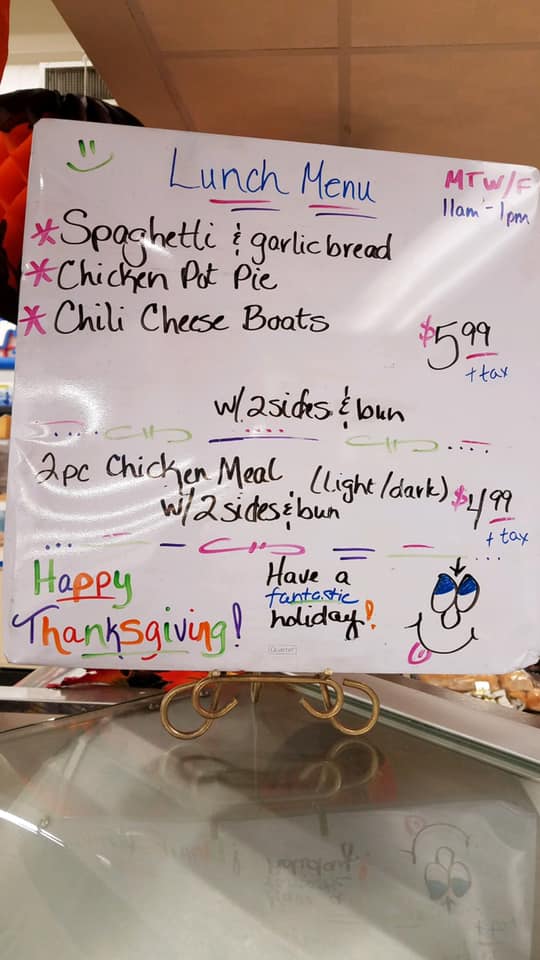 Lunch Menu
MTW/F
11am - 1pm
* Spaghetti & garlic bread
* Chicken Pot Pie
* Chili Cheese Boats
$5 99
+ tax
w/ 2 sides & bun
2pc Chicken Meal (light/dark) $4 99
w/ 2 sides & bun
+ tax
Happy
Thanksgiving!
Have a
fantastic
holiday!
Quartet